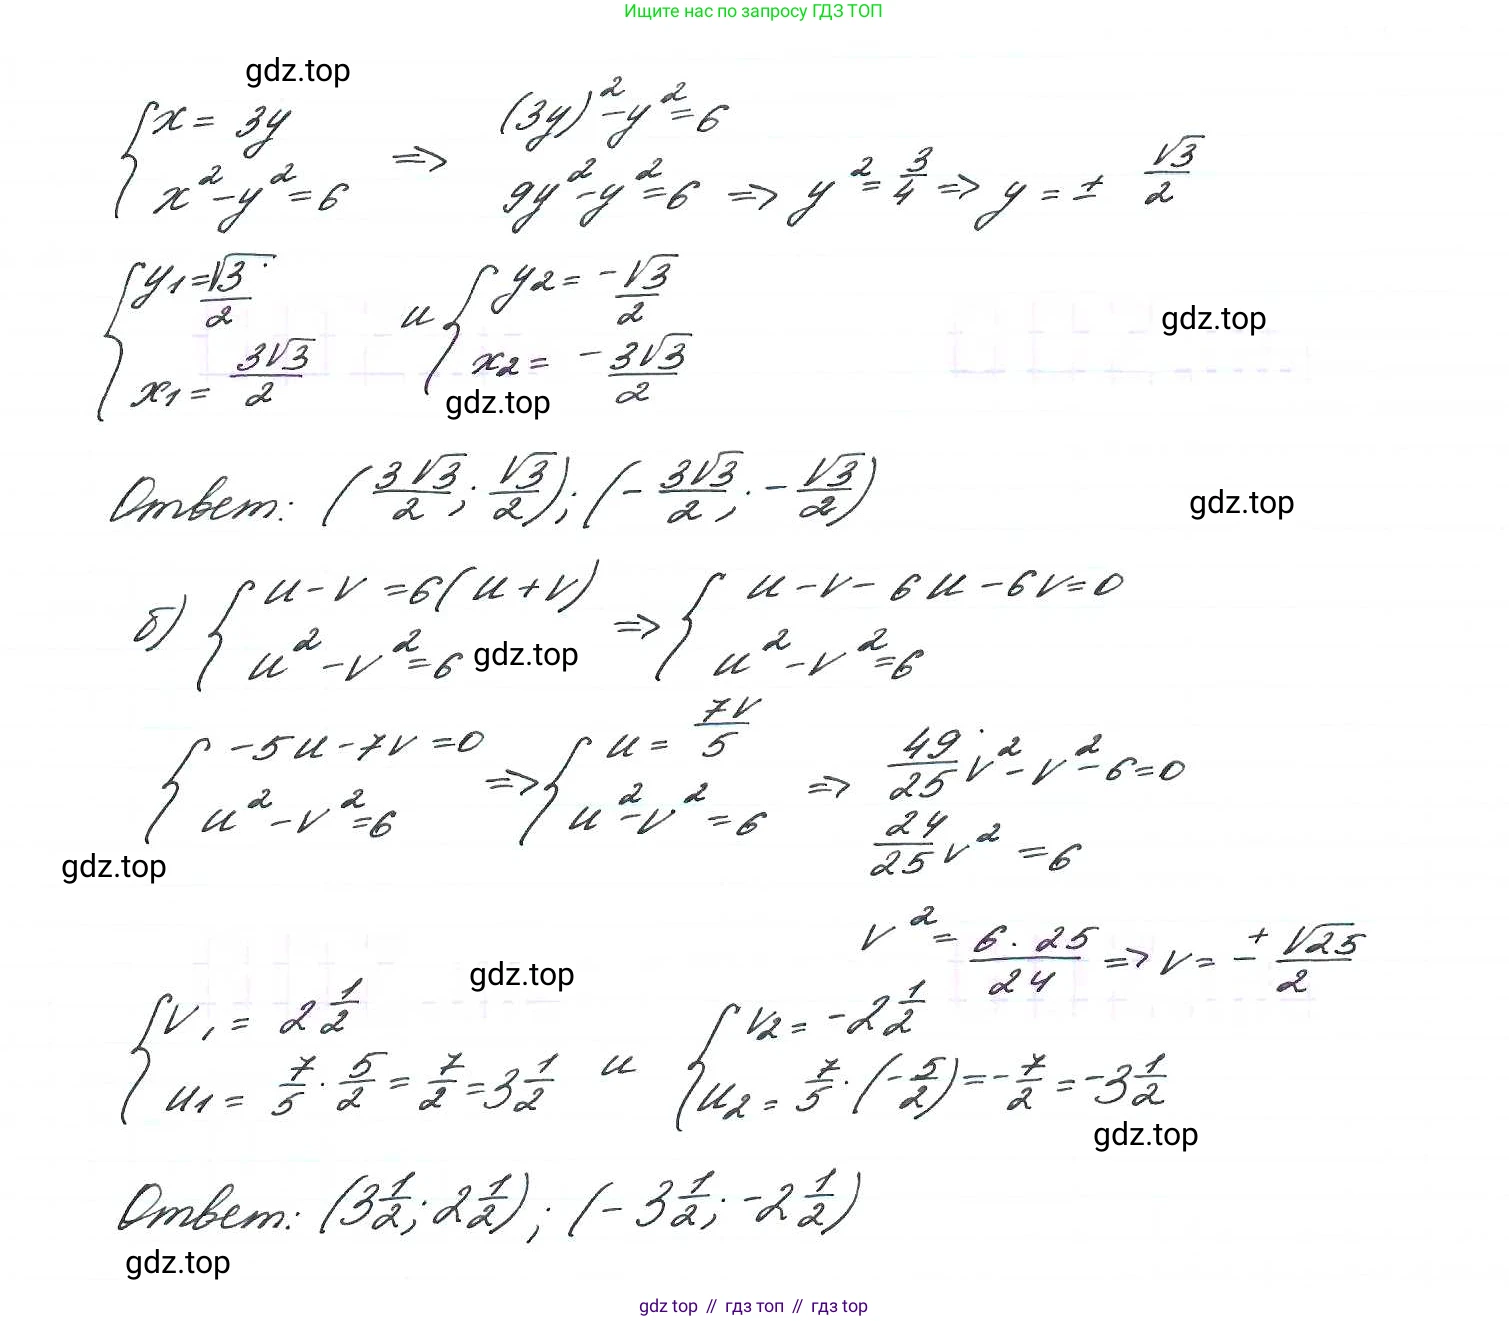 Ищите нас по запросу ГДЗ ТОП
gdz.top
{ x = 3y
x² - y² = 6 => (3y)² - y² = 6
9y² - y² = 6 => y² = 3/4 => y = ± √3/2
{ y₁ = √3/2
x₁ = 3√3/2 и { y₂ = -√3/2
x₂ = -3√3/2
gdz.top
gdz.top
Ответ: (3√3/2; √3/2); (-3√3/2; -√3/2)
gdz.top
б) { u - v = 6(u + v)
u² - v² = 6 => { u - v - 6u - 6v = 0
u² - v² = 6
gdz.top
{ -5u - 7v = 0
u² - v² = 6 => { u = 7v/5
u² - v² = 6 => 49/25 v² - v² - 6 = 0
24/25 v² = 6
gdz.top
v² = 6·25/24 => v = ± √25/2
gdz.top
{ v₁ = 2 1/2
u₁ = 7/5 · 5/2 = 7/2 = 3 1/2 и { v₂ = -2 1/2
u₂ = 7/5 · (-5/2) = -7/2 = -3 1/2
gdz.top
Ответ: (3 1/2; 2 1/2); (-3 1/2; -2 1/2)
gdz.top
gdz top // гдз топ // гдз top